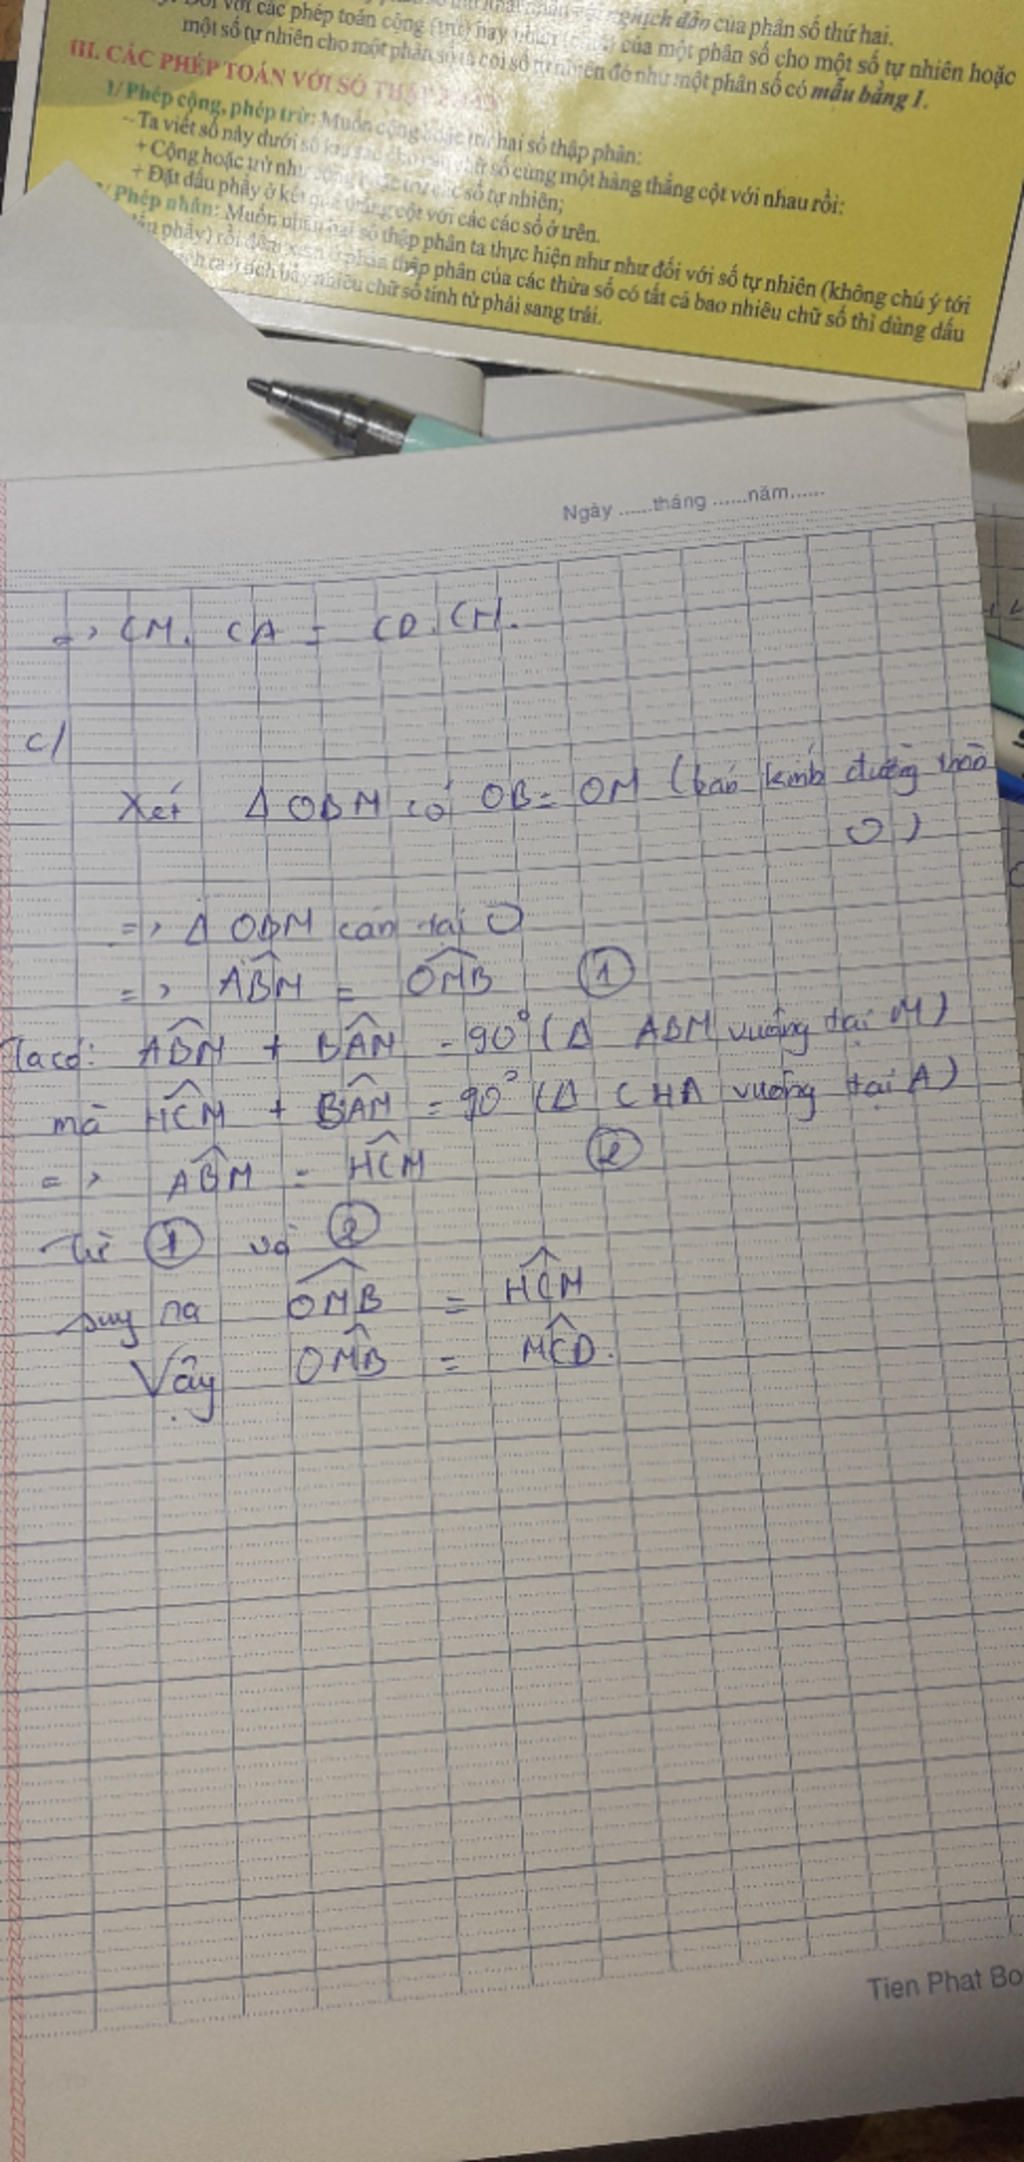 nghịch đảo của phân số thứ hai.
với các phép toán cộng (trừ) hay của một phân số cho một số tự nhiên hoặc
một số tự nhiên cho một phân số ta coi số tự nhiên đó như một phân số có mẫu bằng 1.
III. CÁC PHÉP TOÁN VỚI SỐ
1/ Phép cộng, phép trừ: Muốn cộng hoặc trừ hai số thập phân:
- Ta viết số này dưới số kia sao cho chữ số cùng một hàng thẳng cột với nhau rồi:
+ Cộng hoặc trừ như cộng hoặc trừ các số tự nhiên;
+ Đặt dấu phẩy ở kết quả thẳng cột với các các số ở trên.
Phép nhân: Muốn nhân hai số thập phân ta thực hiện như như đối với số tự nhiên (không chú ý tới
dấu phẩy) rồi đếm xem ở phần thập phân của các thừa số có tất cả bao nhiêu chữ số thì dùng dấu
ra ở tích bấy nhiêu chữ số tính từ phải sang trái.
Ngày ......tháng ......năm......
=> CM. CA = CD. CH.
c/
Xét Δ OBM có OB = OM (bán kính đường tròn
O)
=> Δ OBM cân tại O
=> ABM̂ = OMB̂ (1)
Ta có: AB̂M + BÂM = 90° (Δ ABM vuông tại M)
mà HĈM + BÂM = 90° (Δ CHA vuông tại A)
=> AB̂M = HĈM (2)
Từ (1) và (2)
suy ra OM̂B = HĈM
Vậy OM̂B = MĈD.
Tien Phat Bo